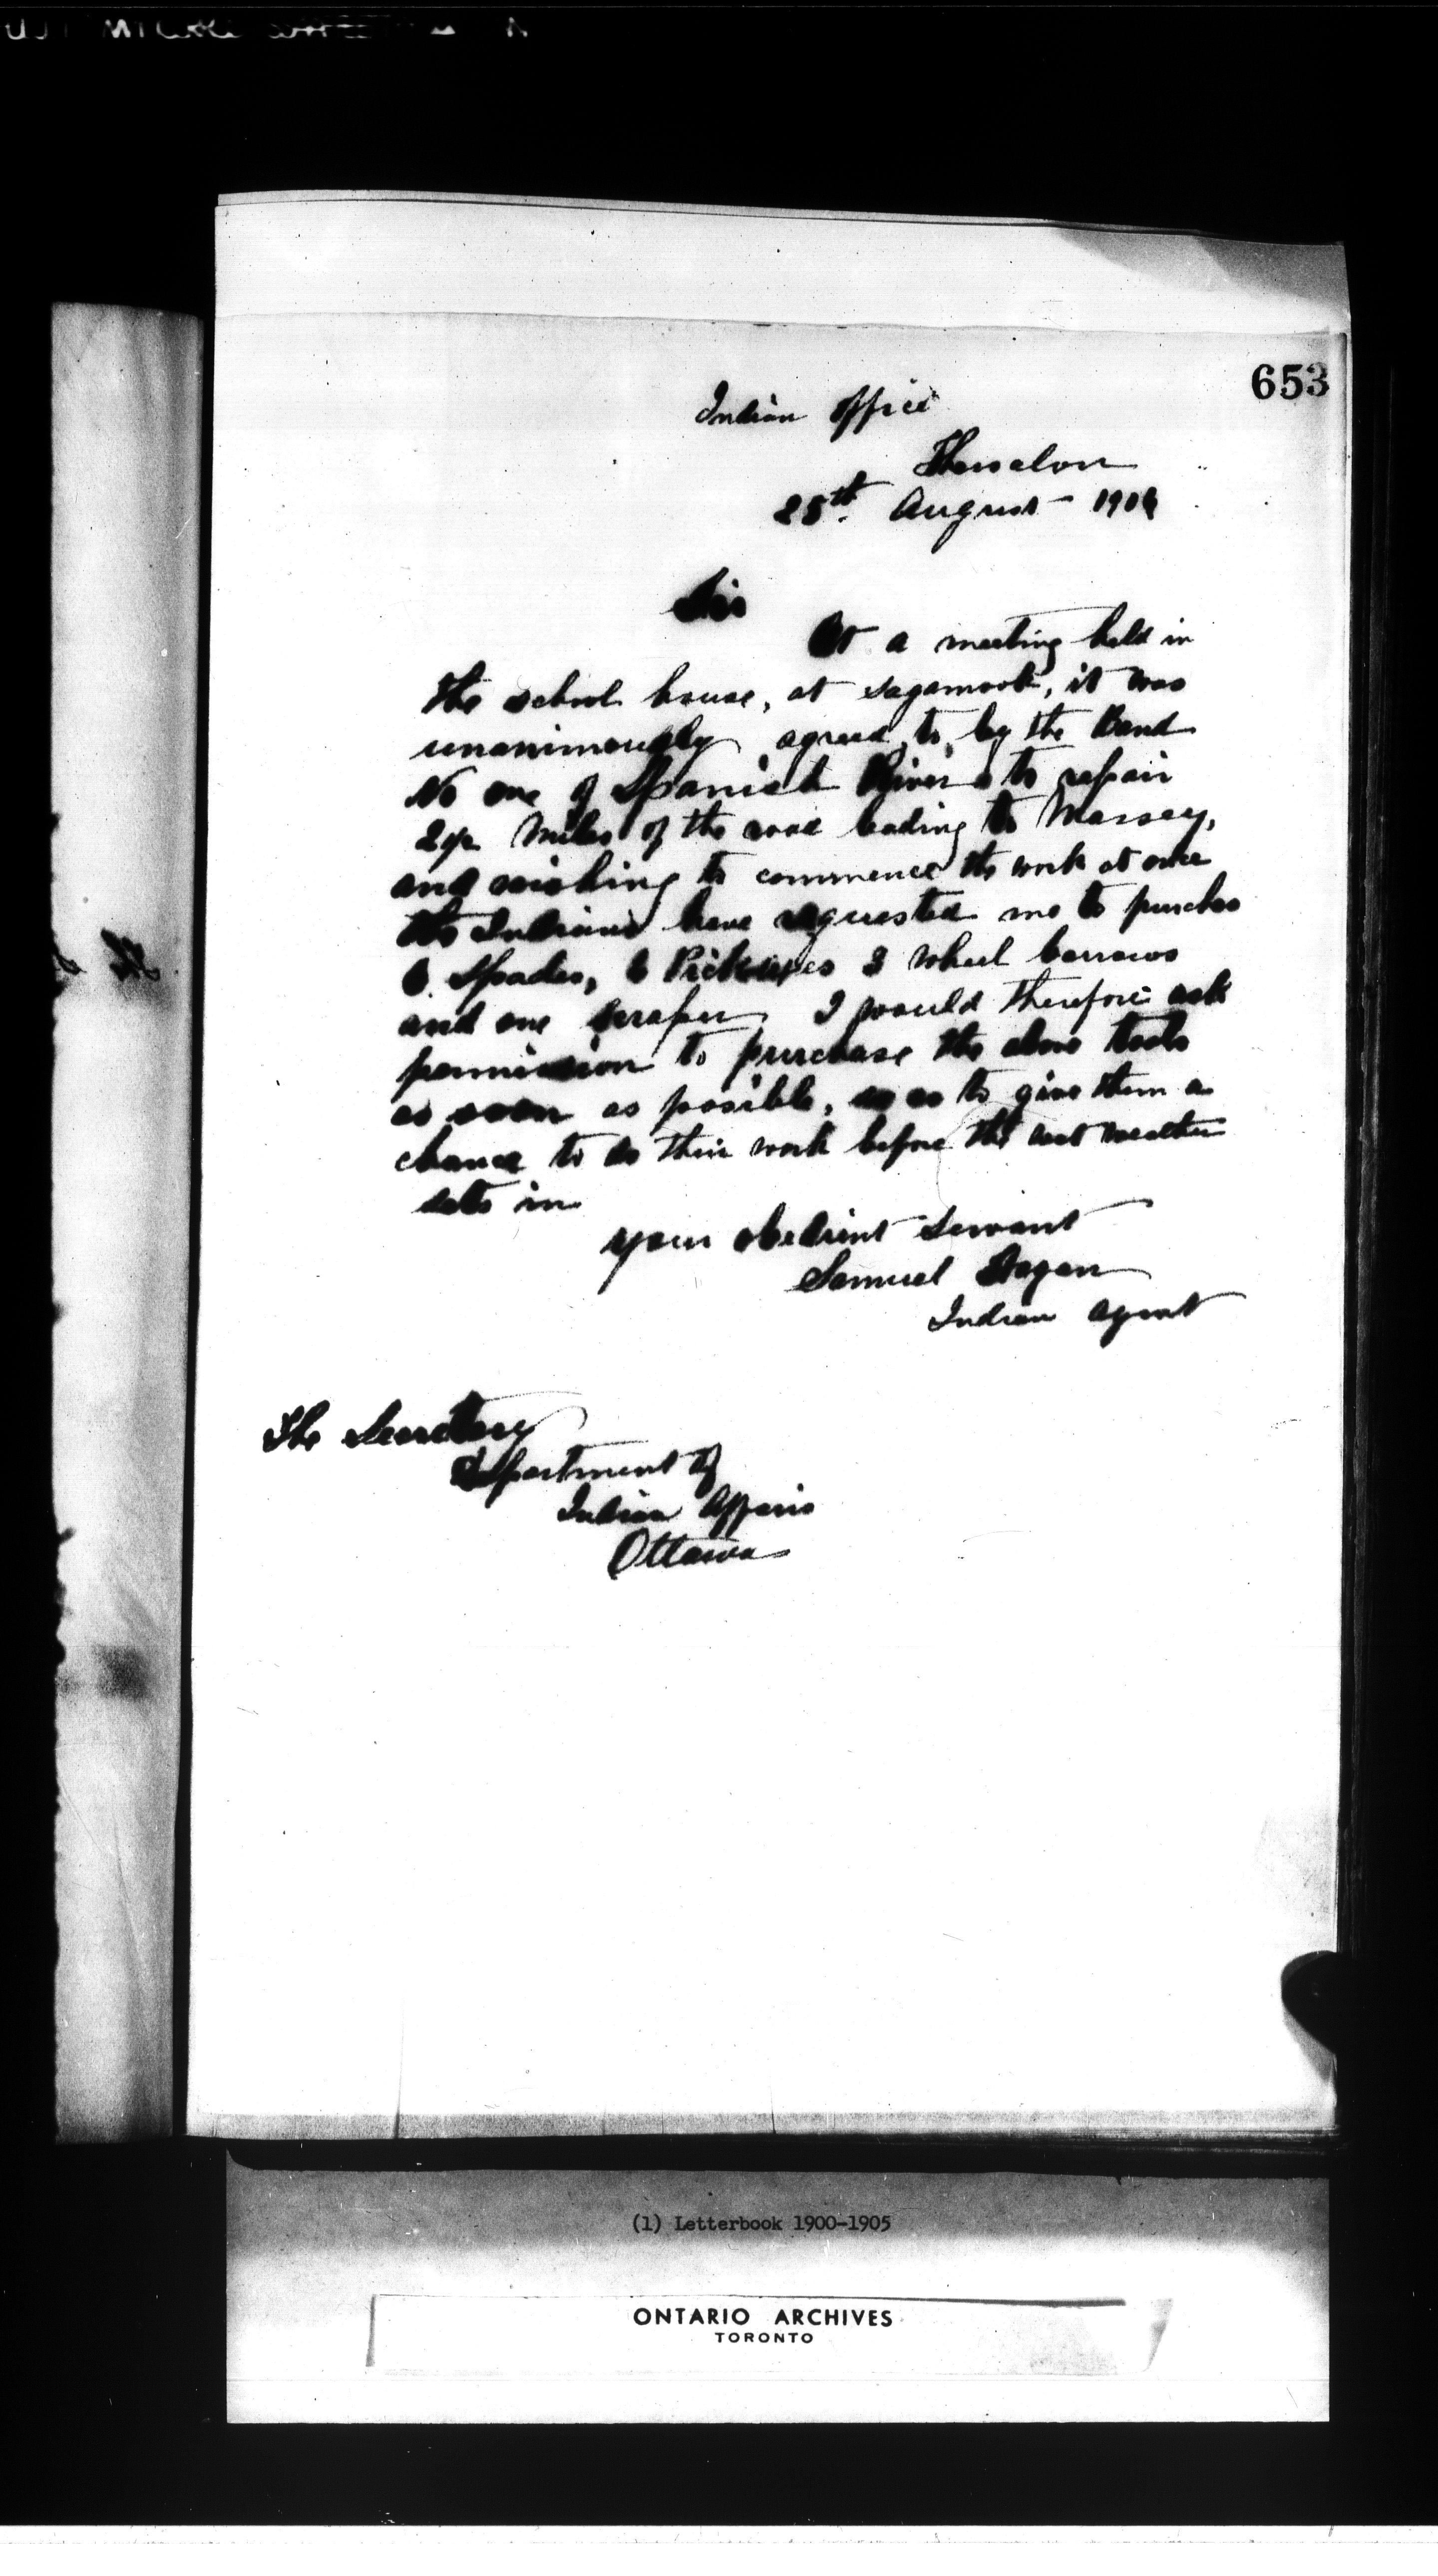 653
Indian Office
Thessalon
25th. August 1904
Sir
At a meeting held in
the school house, at Sagamook, it was
unanimously agreed to, by the Band
No one of Spanish River to repair
2 1/2 Miles of the road leading to Massey,
and wishing to commence the work at once
the Indians have requested me to purchase
6 Spades, 6 Pickaxes 3 wheel barrows
and one scraper, I would therefore ask
permission to purchase the above tools
as soon as possible, so as to give them a
chance to do their work before the wet weather
sets in.
your obedient servant
Samuel Hagan
Indian Agent
The Secretary
Department of
Indian Affairs
Ottawa
(1) Letterbook 1900-1905
ONTARIO ARCHIVES
TORONTO